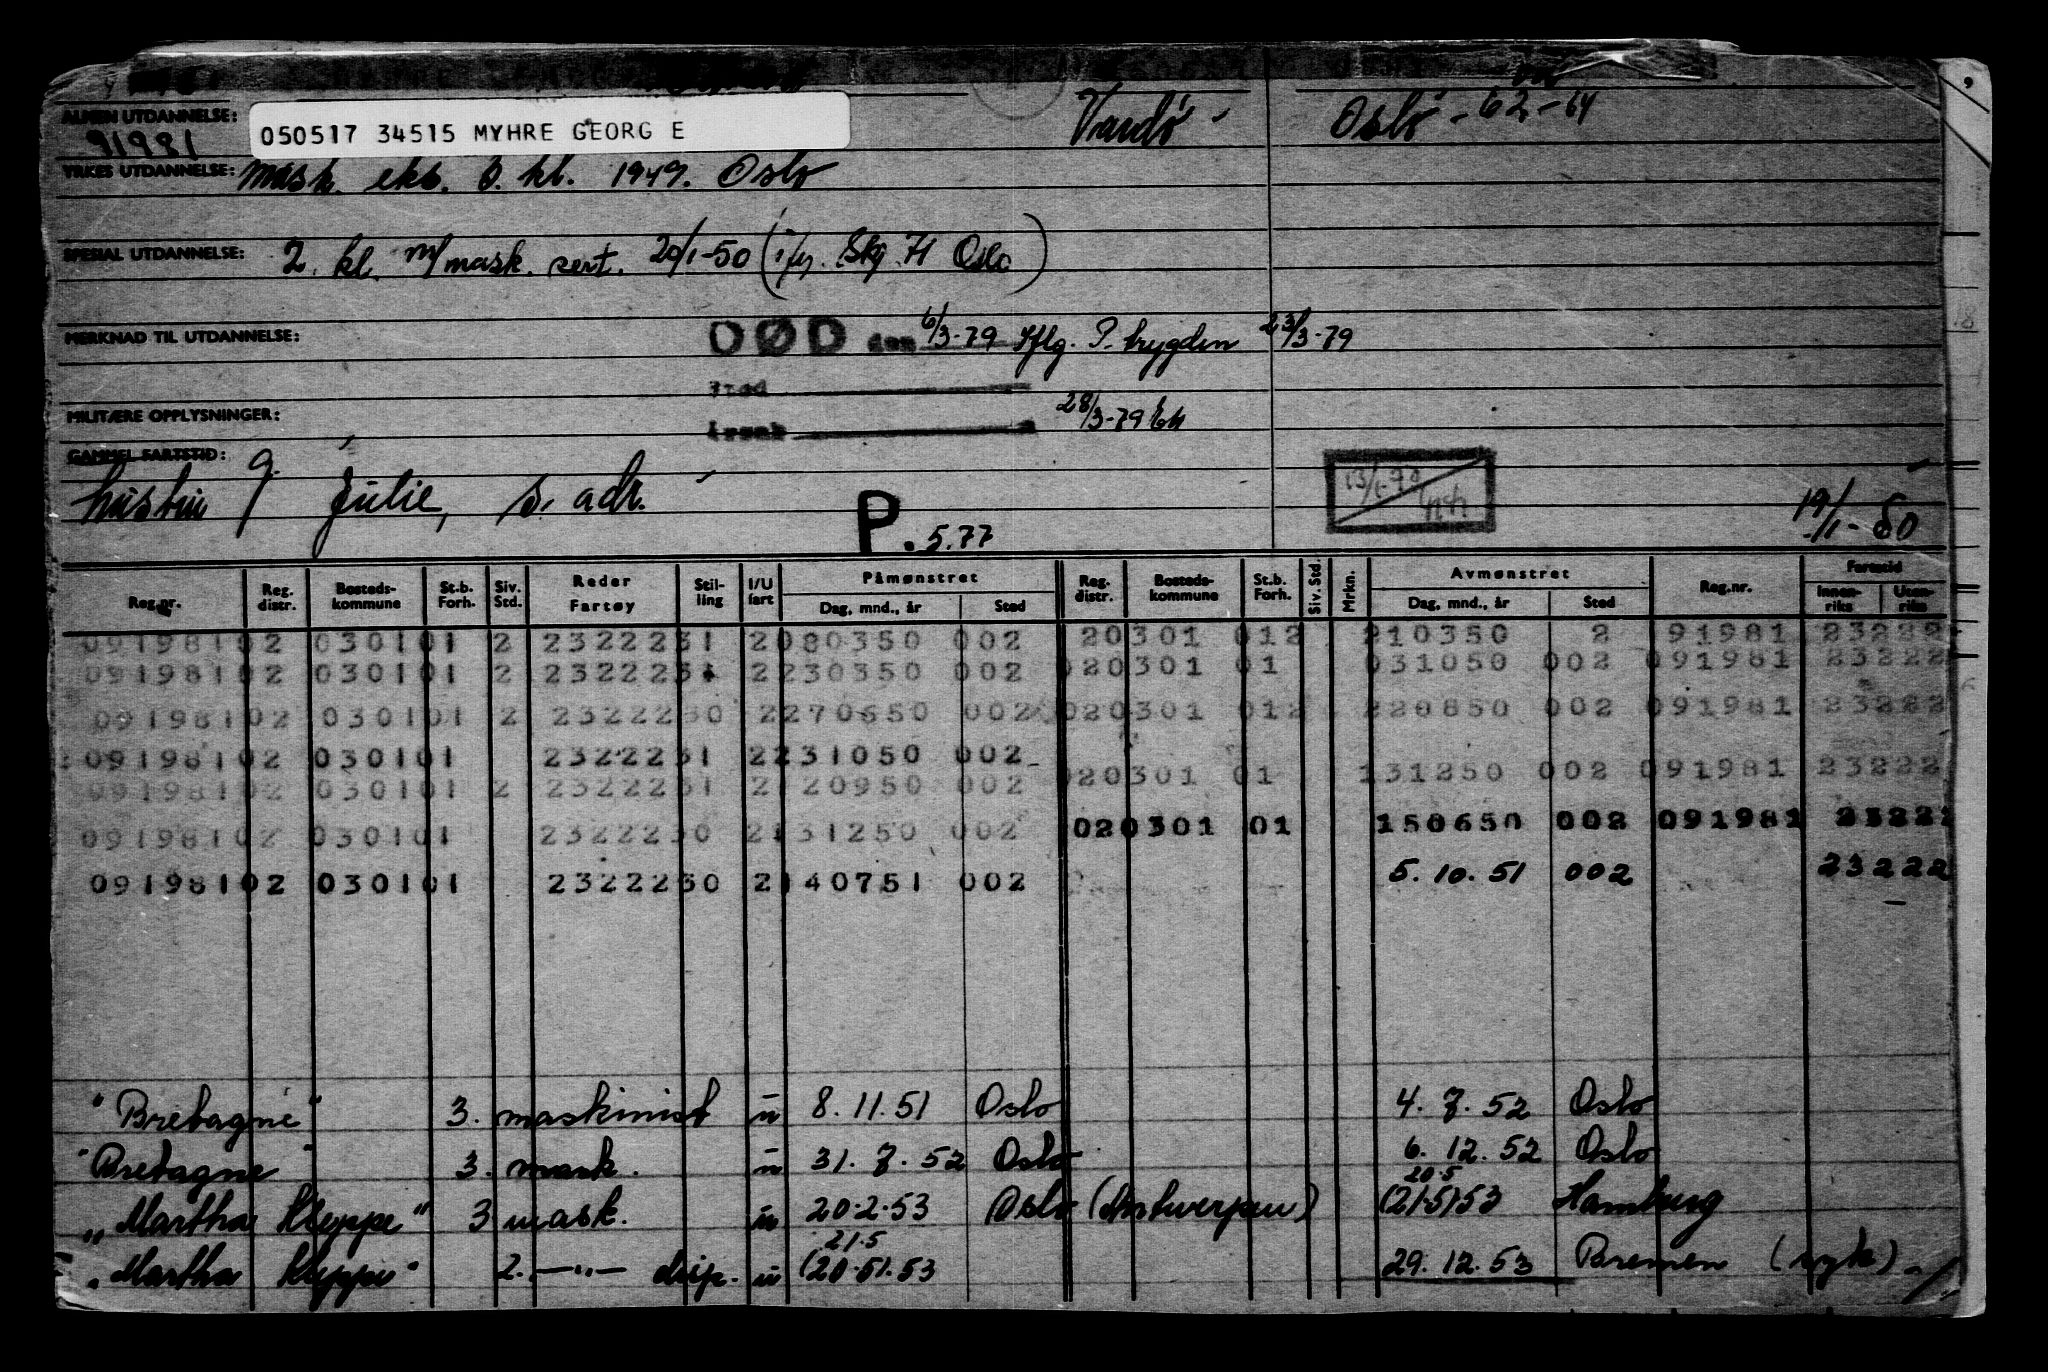 Vardö Oslo - 62-64
ALMEN UTDANNELSE:
91981
050517 34515 MYHRE GEORG E
YRKES UTDANNELSE: mask. eks. kl. 1949. Oslo
SPESIAL UTDANNELSE: 2. kl. m/mask. sert. 20/1-50 (Skj. 71 Oslo)
MERKNAD TIL UTDANNELSE: DØD den 6/3-79 Iflg. P. trygden 23/3-79
Sted
MILITÆRE OPPLYSNINGER: 28/3-79
GAMMEL FARTSTID:
hustru Julie, s. adr. 13/1-70 19/1-50
P. 5.77
Reg.nr. Reg. distr. Bosteds-kommune St.b. Forh. Siv. Std. Reder Fartøy Stil-ling I/U fart Påmønstret Dag, mnd., år Sted Reg. distr. Bosteds-kommune St.b. Forh. Siv. Std. Mrkn. Avmønstret Dag, mnd., år Sted Reg.nr. Fartstid Innen-riks Uten-riks
09198102 030101 2 2322231 2080350 002 20301 012 210350 2 91981 23222
09198102 030101 2 2322231 2230350 002 020301 01 031050 002 091981 23222
09198102 030101 2 2322230 2270650 002 020301 012 220850 002 091981 23222
09198102 030101 2322231 2231050 002
020301 01 131250 002 091981 23222
09198102 030101 2 2322231 2120950 002
020301 01 150650 002 091981 23222
09198102 030101 2322230 2131250 002
5.10.51 002 23222
09198102 030101 2322230 2140751 002
"Bretagne" 3. maskinist u 8.11.51 Oslo 4.7.52 Oslo
"Bretagne" 3. mask. u 31.7.52 Oslo 6.12.52 Oslo
20.5
"Martha Kleppe" 3 mask. u 20.2.53 Oslo (Antwerpen) (21.5)53 Hamburg
21.5
"Martha Kleppe" 2. —"— disp. u (20.5).53 29.12.53 Bremen (syk).